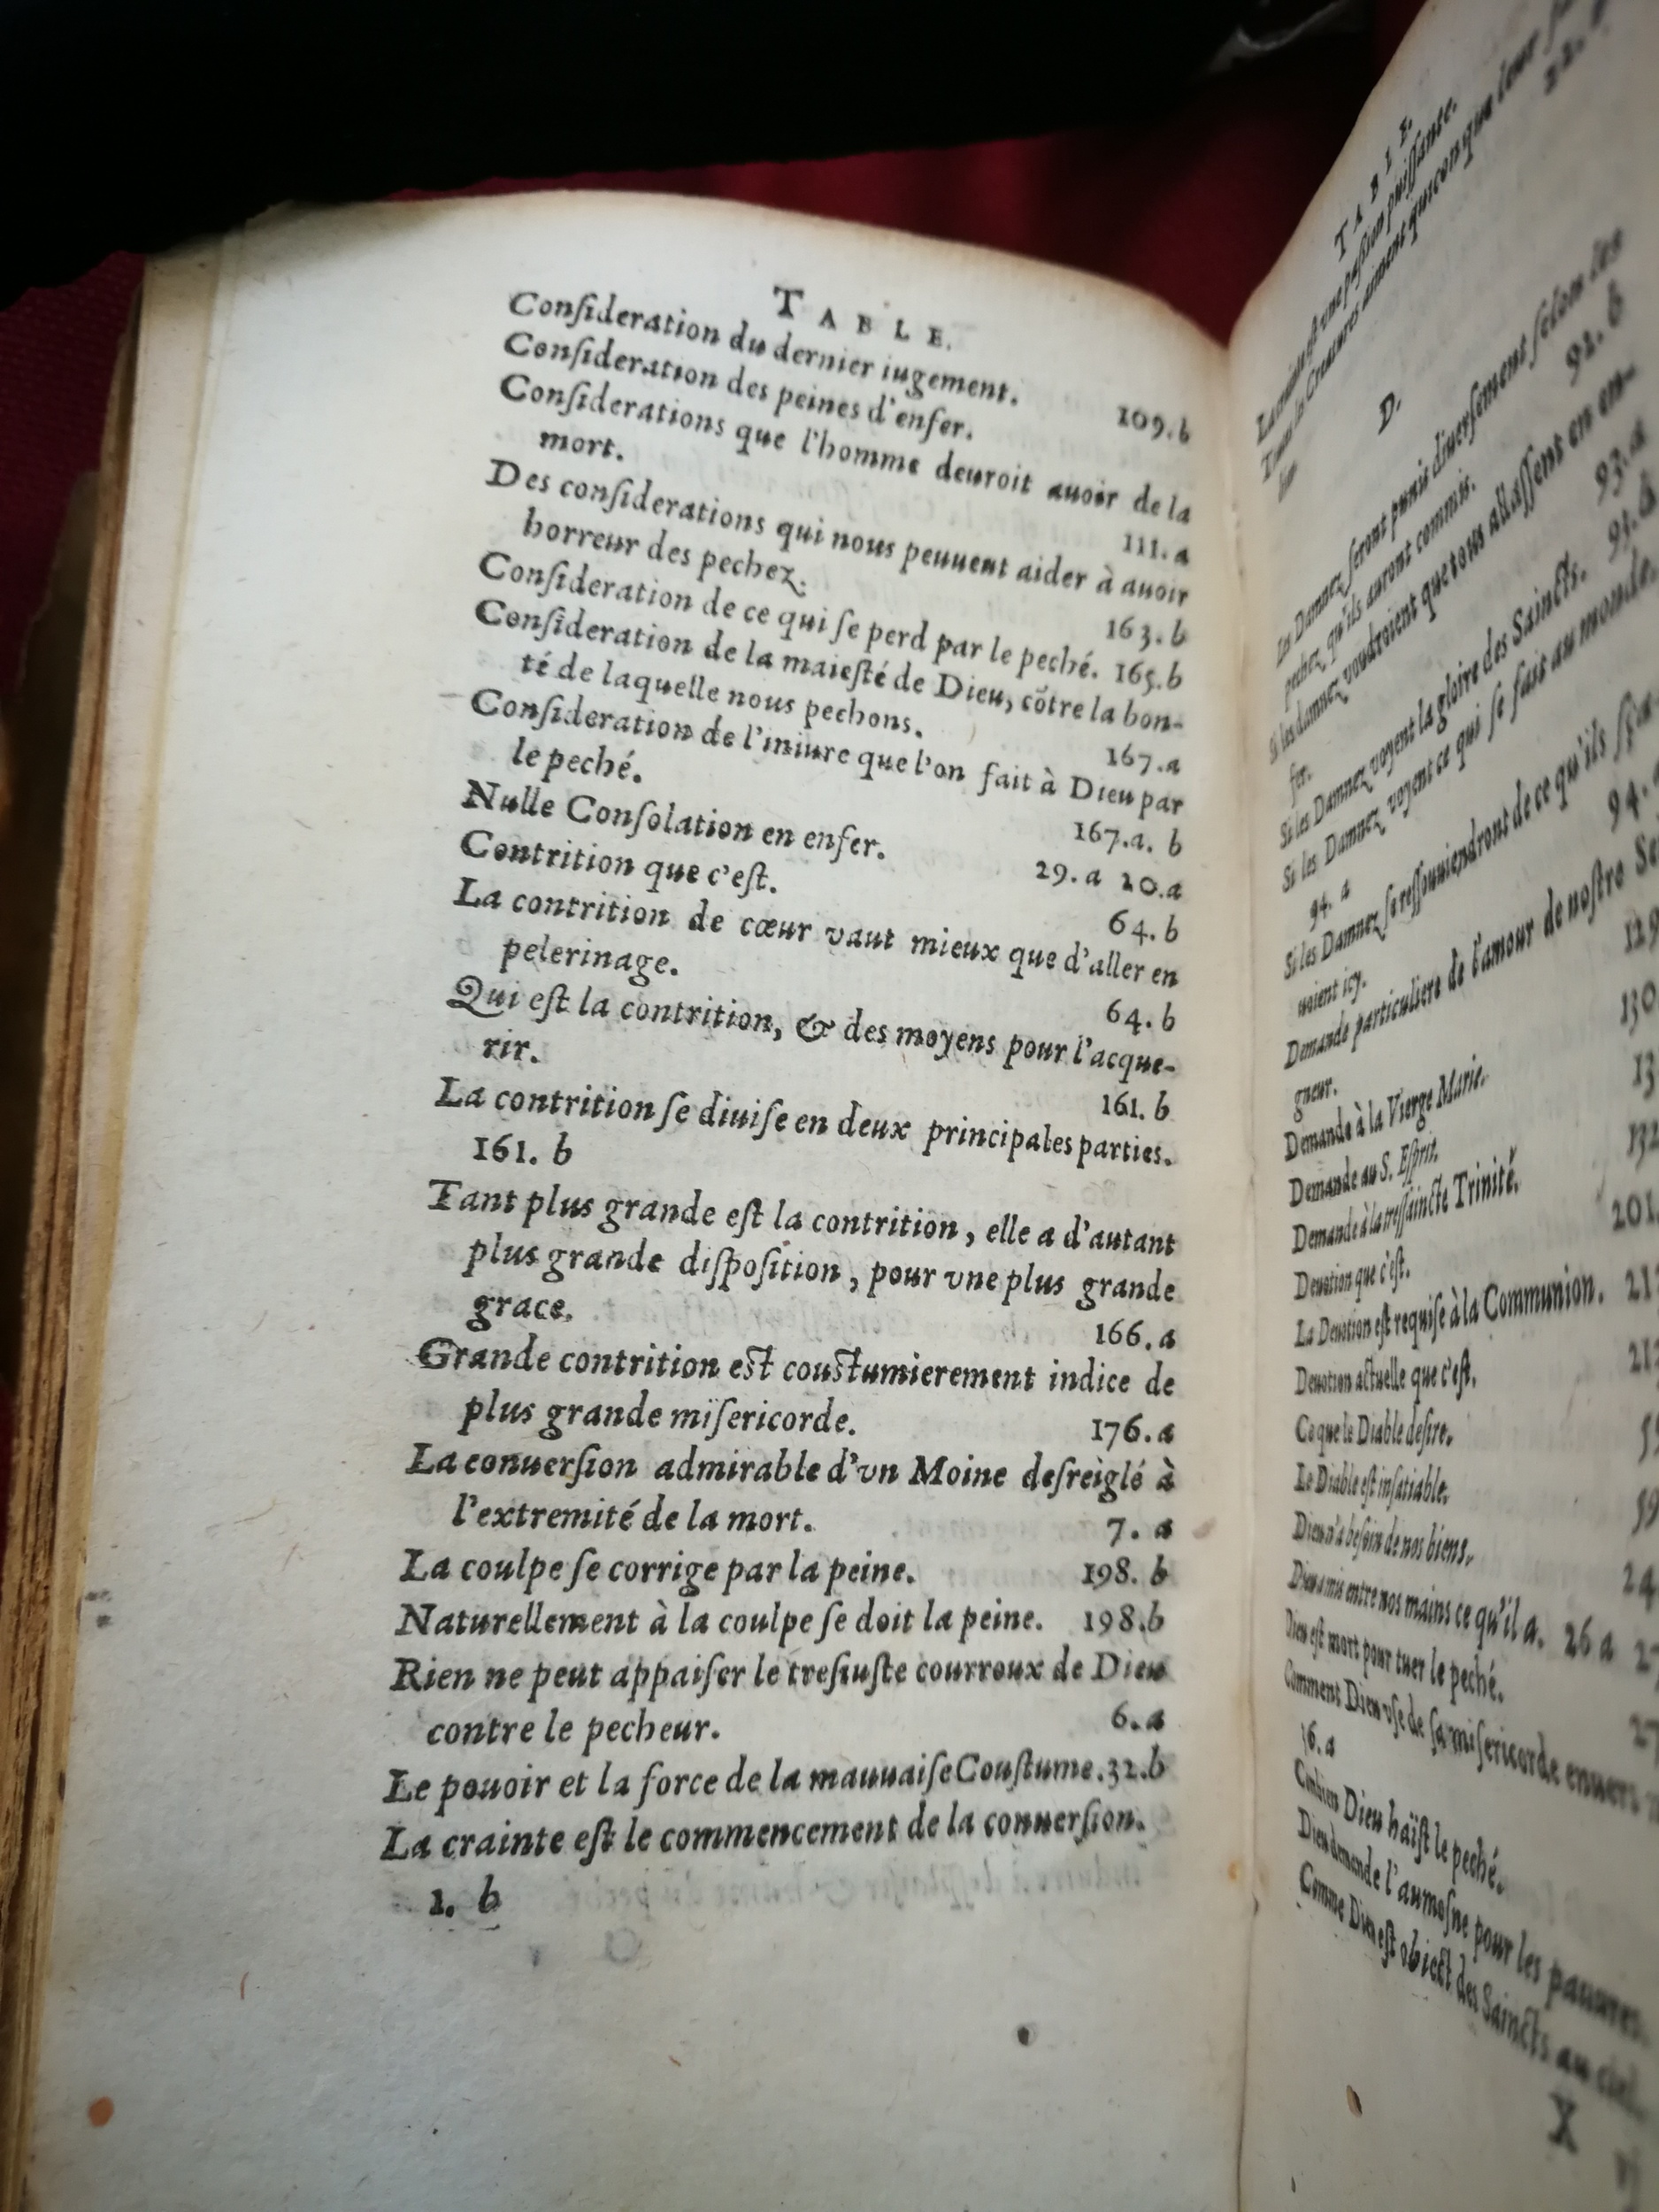 TABLE.
Conſideration du dernier iugement. 109.b
Conſideration des peines d'enfer.
Conſiderations que l'homme deuroit auoir de la
mort. 111.a
Des conſiderations qui nous peuuent aider à auoir
horreur des pechez. 163.b
Conſideration de ce qui ſe perd par le peché. 165.b
Conſideration de la maieſté de Dieu, cõtre la bon-
té de laquelle nous pechons. 167.a
Conſideration de l'iniure que l'on fait à Dieu par
le peché. 167.a. b
Nulle Conſolation en enfer. 29.a 20.a
Contrition que c'eſt. 64.b
La contrition de cœur vaut mieux que d'aller en
pelerinage. 64.b
Qui eſt la contrition, & des moyens pour l'acque-
rir. 161. b
La contrition ſe diuiſe en deux principales parties.
161. b
Tant plus grande eſt la contrition, elle a d'autant
plus grande diſpoſition, pour vne plus grande
grace. 166.a
Grande contrition eſt couſtumierement indice de
plus grande miſericorde. 176.a
La conuerſion admirable d'vn Moine deſreiglé à
l'extremité de la mort. 7. a
La coulpe ſe corrige par la peine. 198. b
Naturellement à la coulpe ſe doit la peine. 198.b
Rien ne peut appaiſer le treſiuſte courroux de Dieu
contre le pecheur. 6.a
Le pouoir et la force de la mauuaiſe Couſtume. 32.b
La crainte eſt le commencement de la conuerſion.
1. b
TABLE.
La crainte eſt vne paſſion puiſſante.
Creatures aiment quiconque leur
D.
Les Damnez ſeront punis diuerſement ſelon les
pechez qu'ils auront commis. 92. b
Si les damnez voudroient que tous allaſſent en en-
fer. 93.a
Si les Damnez voyent la gloire des Saincts. 93.b
Si les Damnez voyent ce qui ſe fait au monde.
94. a
Si les Damnez ſe reſſouuiendront de ce qu'ils ſça-
uoient icy. 94.
Demande particuliere de l'amour de noſtre Sei
gneur. 129
Demande à la Vierge Marie. 130
Demande au S. Eſprit. 13
Demande à la treſſaincte Trinité. 132
Deuotion que c'eſt. 201.
La Deuotion eſt requiſe à la Communion. 21
Deuotion actuelle que c'eſt. 21
Ce que le Diable deſire.
Le Diable eſt inſatiable. 59
Dieu n'a beſoin de nos biens.
Dieu a mis entre nos mains ce qu'il a. 26 a 2
Dieu eſt mort pour tuer le peché.
Comment Dieu vſe de ſa miſericorde enuers
Combien Dieu haïſt le peché.
Dieu demande l'aumoſne pour les pauures.
Comme Dieu eſt obiect des Saincts au ciel.
X